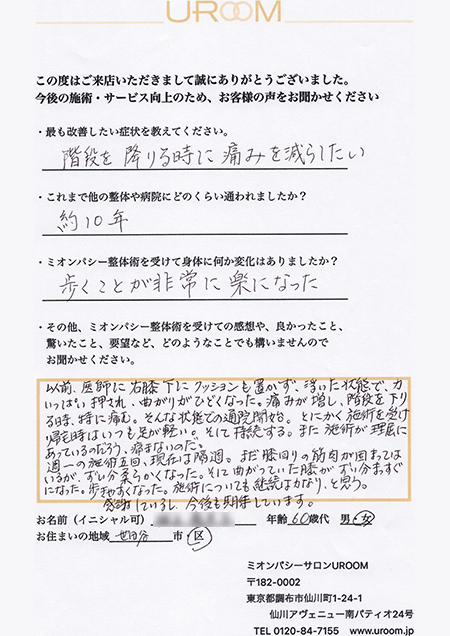 UROOM
この度はご来店いただきまして誠にありがとうございました。
今後の施術・サービス向上のため、お客様の声をお聞かせください
・最も改善したい症状を教えてください。
階段を降りる時に痛みを減らしたい
・これまで他の整体や病院にどのくらい通われましたか？
約10年
・ミオンパシー整体術を受けて身体に何か変化はありましたか？
歩くことが非常に楽になった
・その他、ミオンパシー整体術を受けての感想や、良かったこと、
驚いたこと、要望など、どのようなことでも構いませんので
お聞かせください。
以前、医師に右膝下にクッションも置かず、浮いた状態で、力
いっぱい押され、曲がりがひどくなった。痛みが増し、階段を下り
る時、特に痛む。そんな状態での通院開始。とにかく施術を受け
帰る時はいつも足が軽い。そして持続する。また施術が理屈に
あっているのだろう、痛まないのだ。
週一の施術五回、現在は隔週。まだ膝回りの筋肉が固まっては
いるが、ずい分柔らかくなった。そして曲がっていた膝がずい分まっすぐ
になった。歩きやすくなった。施術については継続は力なり、と思う。
感謝しているし、今後も期待しています。
お名前（イニシャル可） 年齢 60歳代 男・女
お住まいの地域 世田谷 市・区
ミオンパシーサロンUROOM
〒182-0002
東京都調布市仙川町1-24-1
仙川アヴェニュー南パティオ24号
TEL 0120-84-7155 www.uroom.jp